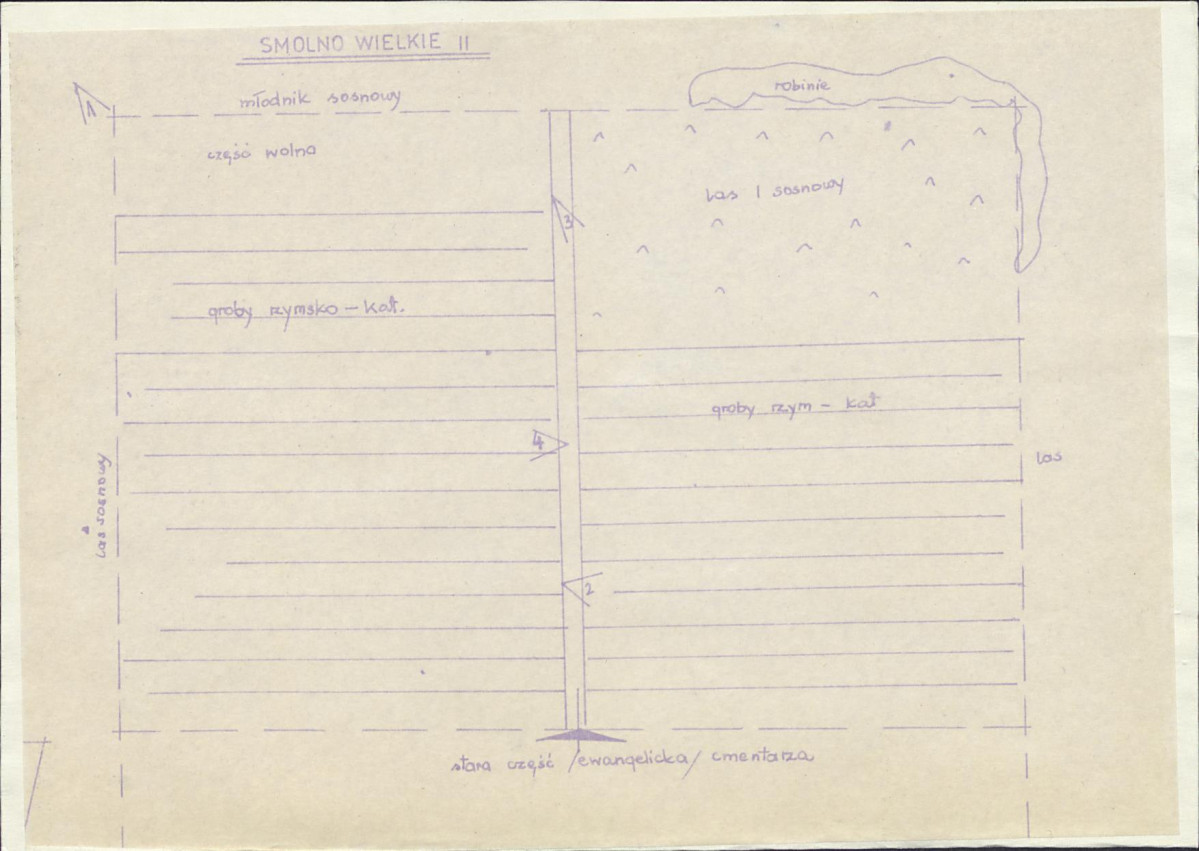 SMOLNO WIELKIE II
młodnik sosnowy
robinie
1
część wolna
las I sosnowy
3
groby rzymsko - kat.
groby rzym - kat
4
las
las sosnowy
2
stara część /ewangelicka/ cmentarza